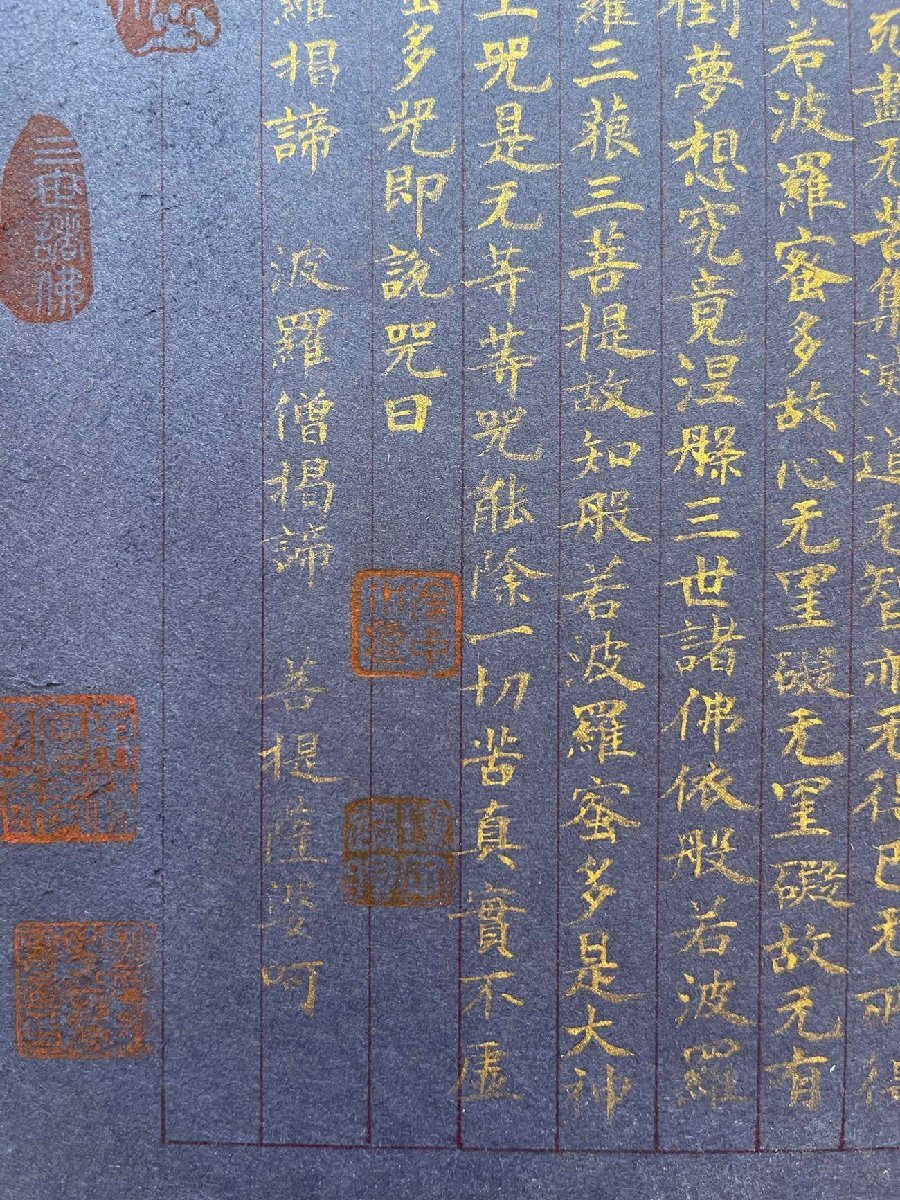 死盡无苦集滅道无智亦无得已无所得
若波羅蜜多故心无罣礙无罣礙故无有
倒夢想究竟涅槃三世諸佛依般若波羅
羅三藐三菩提故知般若波羅蜜多是大神
上咒是无等等咒能除一切苦真實不虛
蜜多咒即說咒曰
羅揭諦 波羅僧揭諦 菩提薩婆呵
三世諸佛